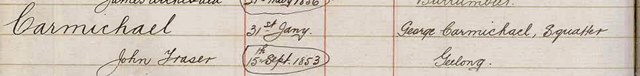 Carmichael 31st Jany. George Carmichael, Squatter
John Fraser 15th Sept. 1853 Geelong.